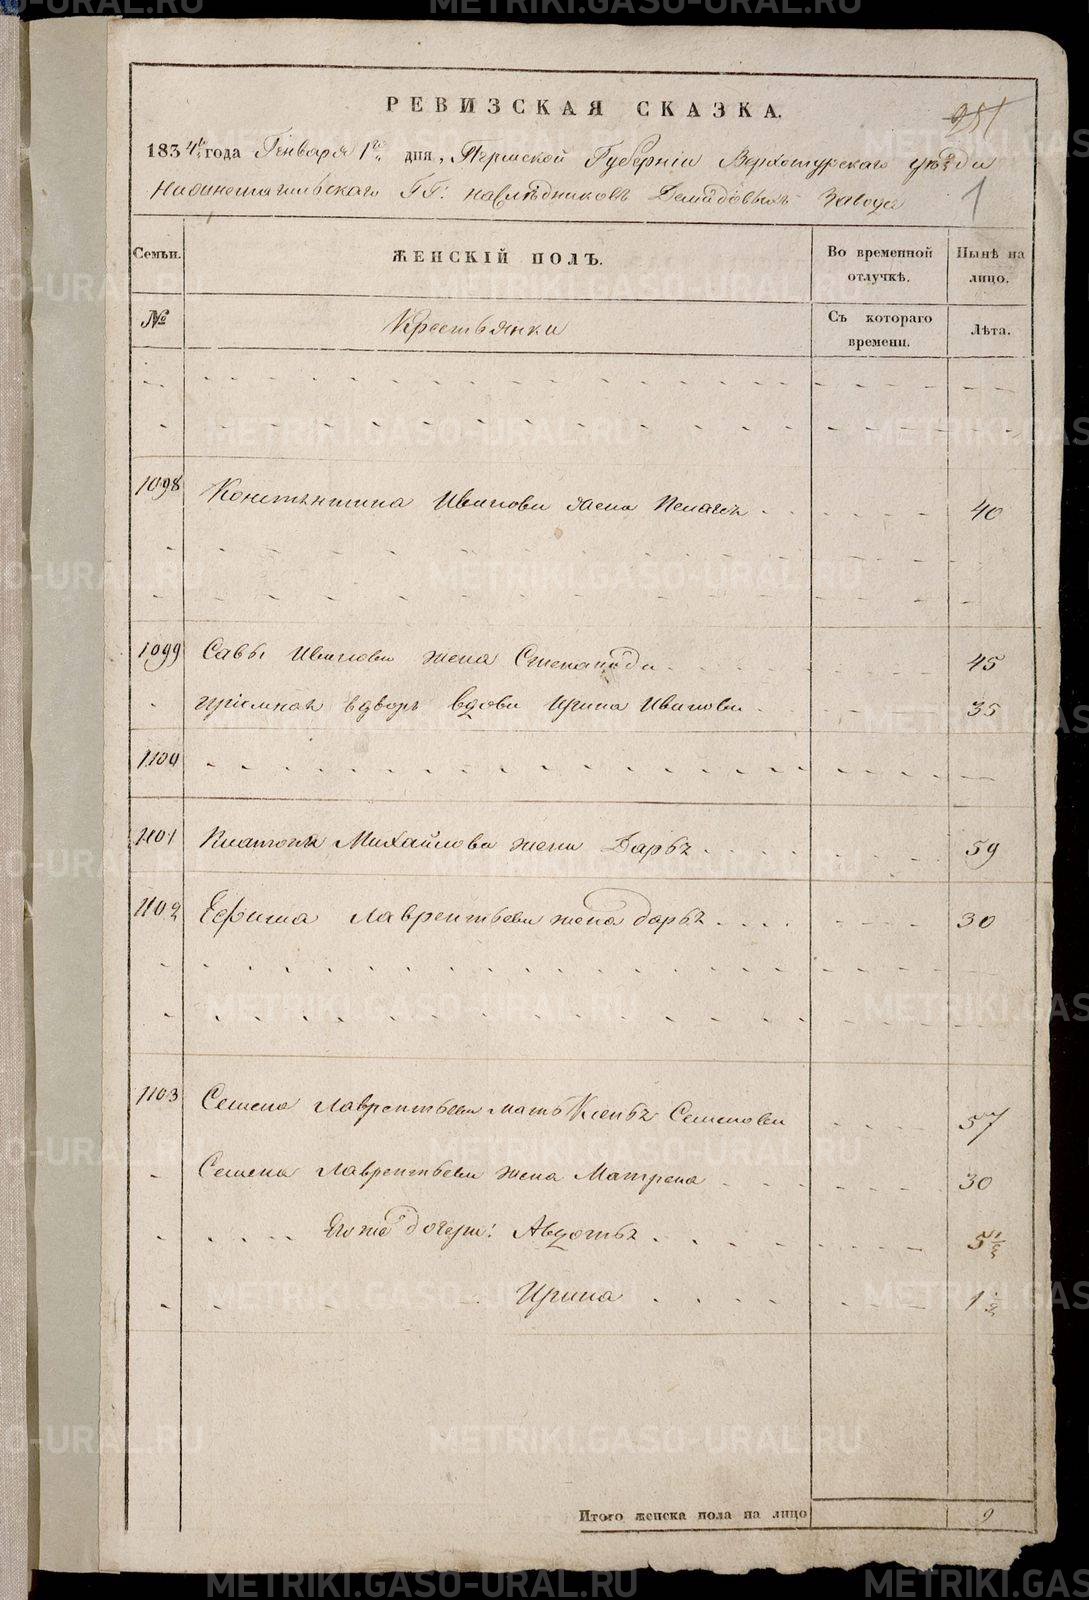 РЕВИЗСКАЯ СКАЗКА.
951
1834го года Генваря 1го дня, Пермской Губернiи Верхотурскаго уѣзда
Нижнетагильскаго ГГ: наслѣдниковъ Демидовыхъ завода
1
Семьи.
ЖЕНСКIЙ ПОЛЪ.
Во временной отлучкѣ.
Нынѣ на лицо.
№
Крестьянки
Съ котораго времени.
Лѣта.
1098 Константина Иванова жена Пелагея 40
1099 Савы Иванова жена Степанида 45
прiемная вдворъ вдова Ирина Иванова 35
1100
1101 Платона Михайлова жена Дарья 59
1102 Ефима Лаврентьева жена дарья 30
1103 Семена Лаврентьева мать Семенова 57
Семена Лаврентьева жена Матрена 30
Его же дочери: Авдотья 5 1/2
Ирина 1 1/2
Итого женска пола на лицо 9
METRIKI.GASO-URAL.RU